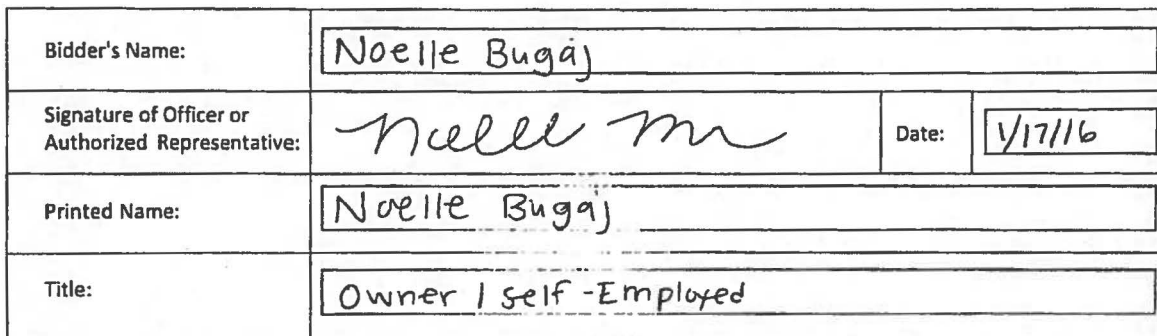 Bidder's Name: Noelle Bugaj
Signature of Officer or
Authorized Representative: Noelle Date: 1/17/16
Printed Name: Noelle Bugaj
Title: Owner / Self-Employed